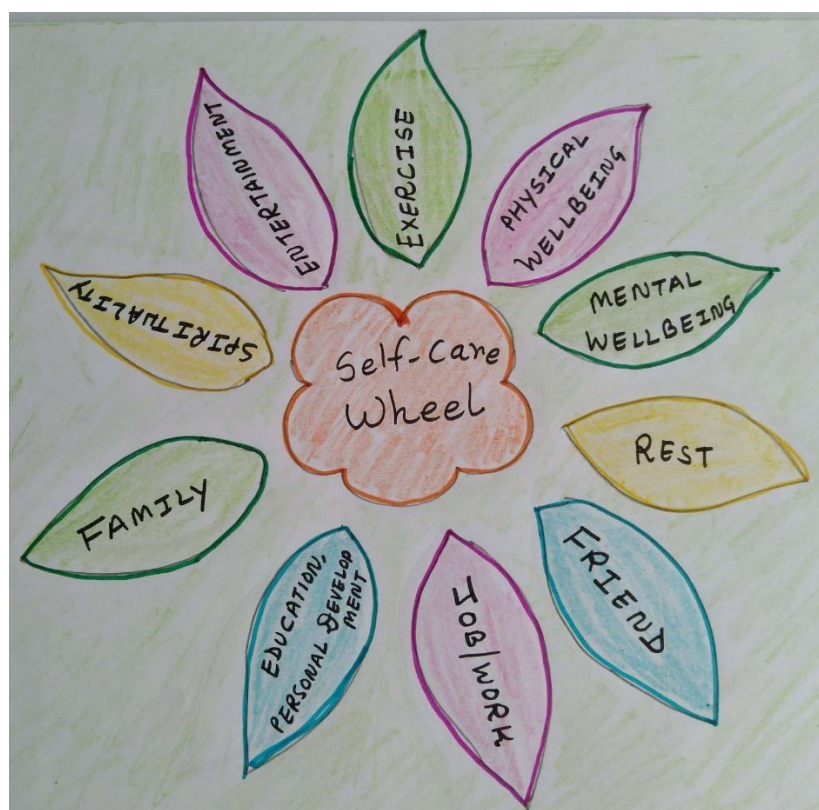 Self-Care
Wheel
EXERCISE
PHYSICAL
WELLBEING
MENTAL
WELLBEING
REST
FRIEND
JOB/WORK
EDUCATION,
PERSONAL DEVELOP
MENT
FAMILY
SPIRITUALITY
ENTERTAINMENT